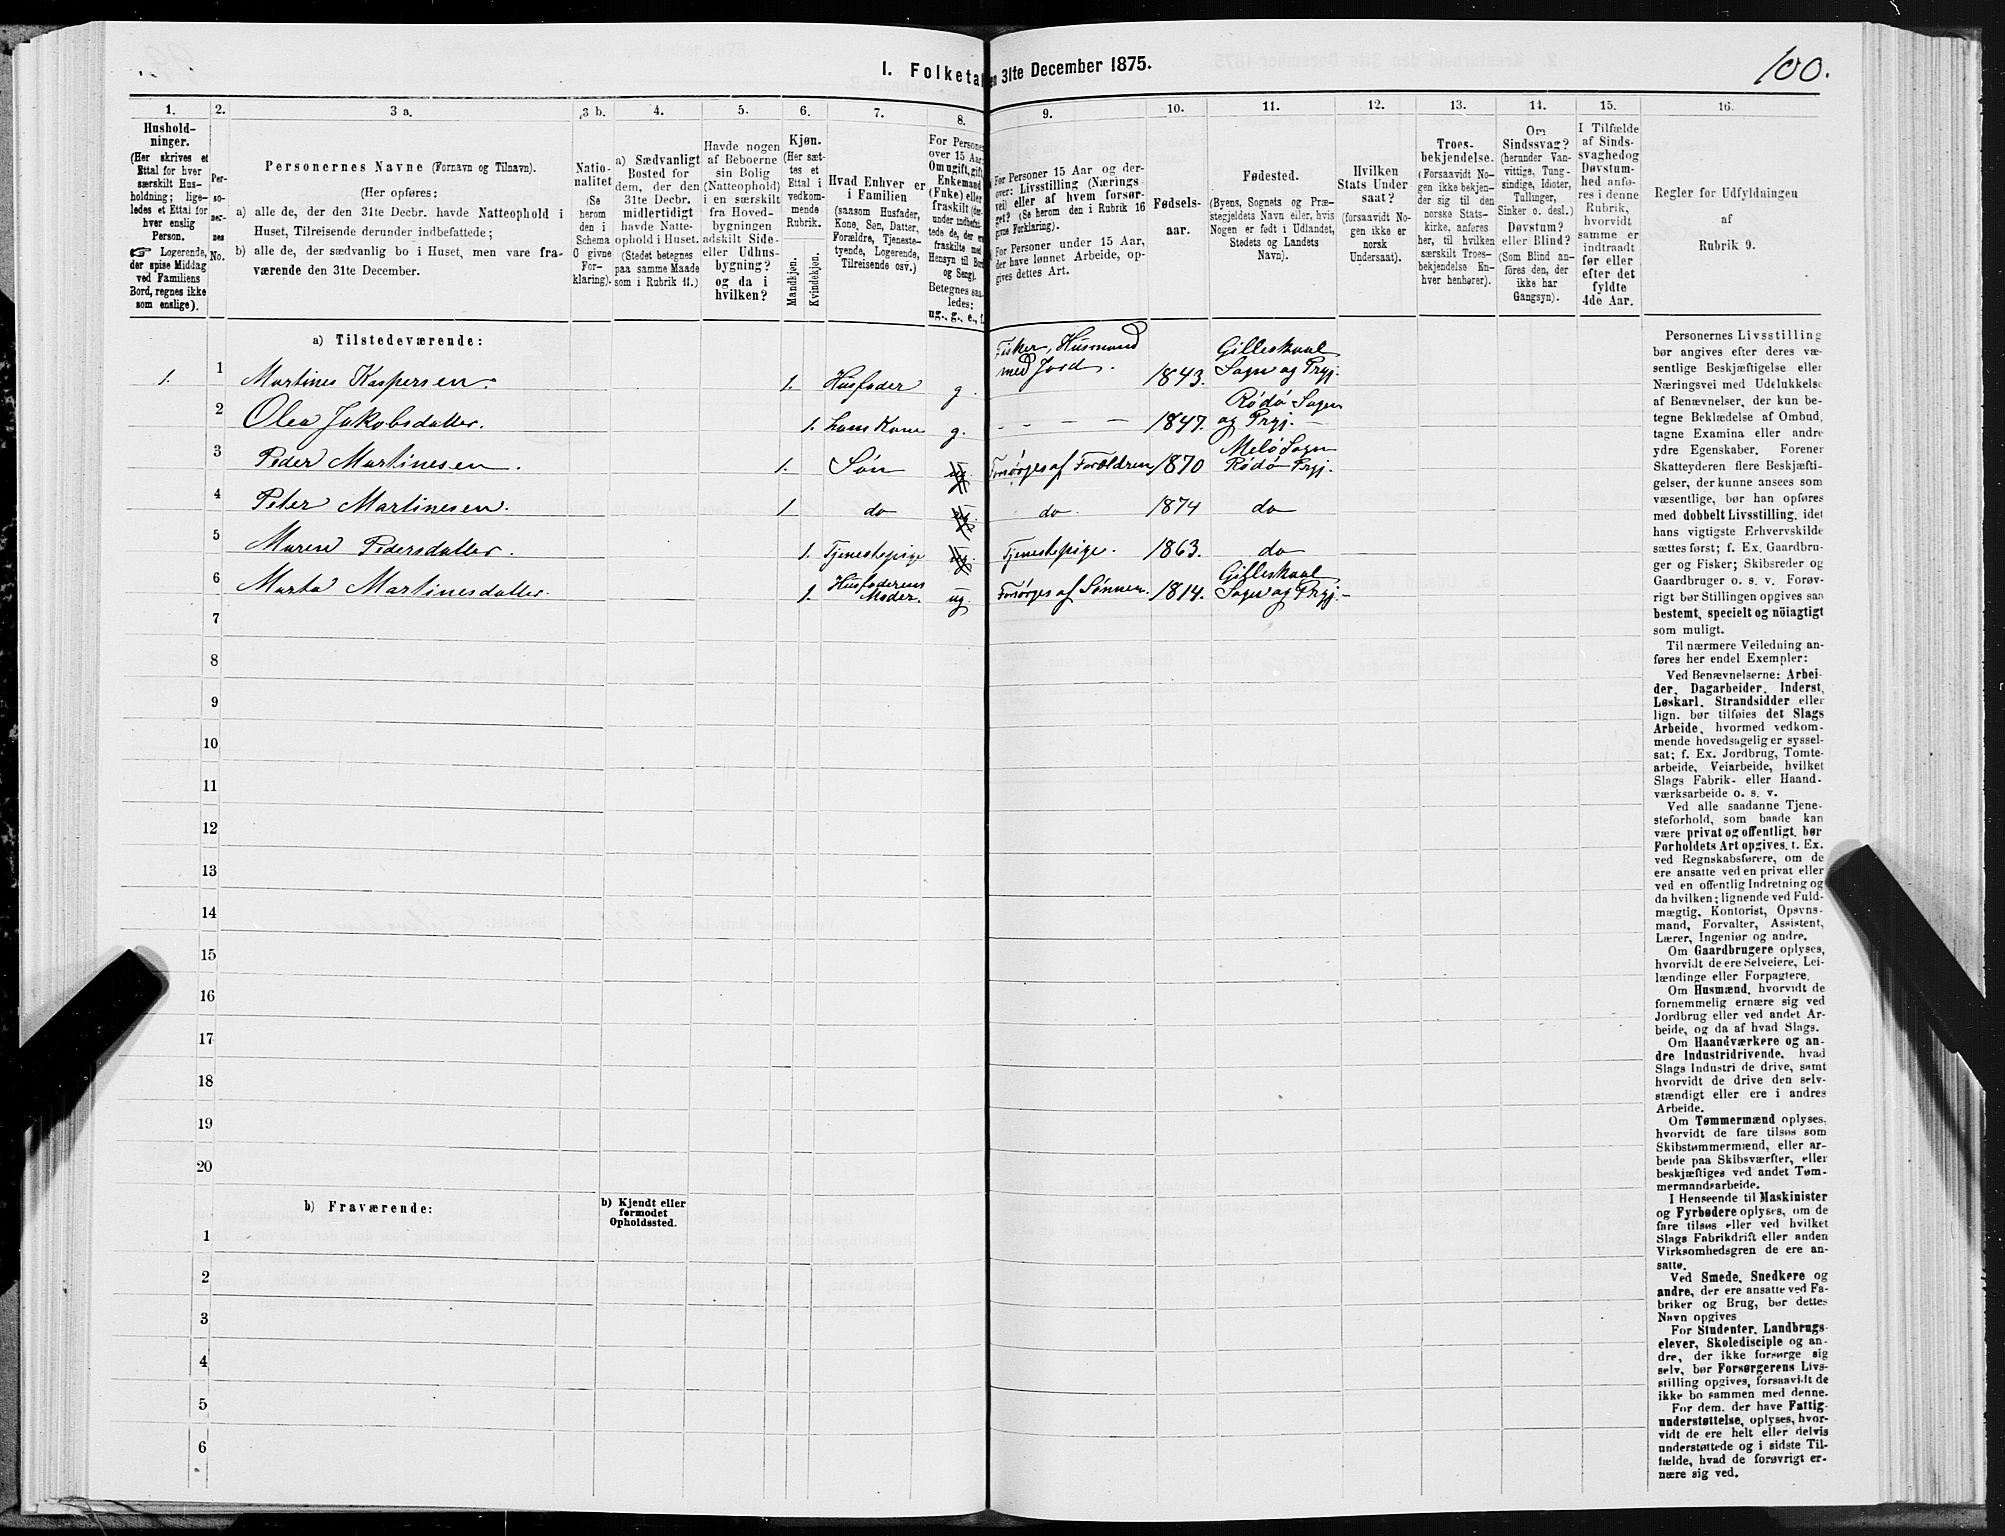 1. Folketal den 31te December 1875.
100.
1.
2.
3 a.
3 b.
4.
5.
6.
7.
8.
9.
10.
11.
12.
13.
14.
15.
16.
Hushold-
ninger.
(Her skrives et
Ettal for hver
særskilt Hus-
holdning; lige-
ledes et Ettal for
hver enslig
Person.
☞ Logerende,
der spise Middag
ved Familiens
Bord, regnes ikke
som enslige).
Per-
so-
ner-
nes
No.
Personernes Navne (Fornavn og Tilnavn).
(Her opføres:
a) alle de, der den 31te Decbr. havde Natteophold i
Huset, Tilreisende derunder indbefattede;
b) alle de, der sædvanlig bo i Huset, men vare fra-
værende den 31te December.
Natio-
nalitet
(Se
herom
den i
Schema
O givne
For-
klaring).
a) Sædvanligt
Bosted for
dem, der den
31te Decbr.
midlertidigt
havde Natte-
ophold i Huset.
(Stedet betegnes
paa samme Maade
som i Rubrik 11.)
Havde nogen
af Beboerne
sin Bolig
(Natteophold)
i en særskilt
fra Hoved-
bygningen
adskilt Side-
eller Udhus-
bygning?
og da i
hvilken?
Kjøn.
(Her sæt-
tes et
Ettal i
vedkom-
mende
Rubrik.
Mandkjøn.
Kvindekjøn.
Hvad Enhver er
i Familien
(saasom Husfader,
Kone, Søn, Datter,
Forældre, Tjeneste-
tyende, Logerende,
Tilreisende osv.)
For Persone
over 15 Aar:
Om ugift, gift,
Enkemand
(Enke) eller
fraskilt (der-
under indbefat-
tede de, der er
fraskilte med
Hensyn til Bord
og Seng).
Betegnes saa-
ledes:
ug., g., e., f.
For Personer 15 Aar og der-
over: Livsstilling (Nærings
vei) eller af hvem forsør-
get? (Se herom den i Rubrik 16
givne Forklaring).
For Personer under 15 Aar,
der have lønnet Arbeide, op-
gives dettes Art.
Fødsels-
aar.
Fødested.
(Byens, Sognets og Præ-
stegjeldets Navn eller, hvis
Nogen er født i Udlandet,
Stedets og Landets
Navn).
Hvilken
Stats Under
saat?
(forsaavidt No-
gen ikke er
norsk
Undersaat).
Troes-
bekjendelse.
(Forsaavidt No-
gen ikke bekjen-
der sig til den
norske Stats-
kirke, anføres
her, til hvilken
særskilt Troes-
bekjendelse En-
hver henhører).
Om
Sindssvag?
(herunder Van-
vittige, Tung-
sindige, Idioter,
Tullinger,
Sinker o. desl.)
Døvstum?
eller Blind?
(Som Blind an-
føres den, der
ikke har
Gangsyn).
I Tilfælde
af Sinds-
svaghedog
Døvstum-
hed anfø-
res i denne
Rubrik,
hvorvidt
samme er
indtraadt
før eller
efter det
fyldte
4de Aar.
Regler for Udfyldningen
af
Rubrik 9.
a) Tilstedeværende:
1. 1 Martines Kaspersen. 1. Husfader g. Fisker, Husmand med Jord. 1843. Gilleskaal Sogn og Prgj.
2 Olea Jakobsdatter. 1. hans Kone g. - - - - 1847. Rödö Sogn og Prgj. -
3 Peder Martinesen. 1. Sön ug. Forsörges af Forældren 1870 Melö Sogn Rödö Prgj.
4 Peter Martinesen. 1 do ug. do. 1874 do
5 Maren Pedersdatter. 1. Tjenestepige ug. Tjenestepige. 1863. do
6 Marta Martinesdatter. 1. Husfaderens Moder. ug. Forsörges af Sönnen. 1814. Gilleskaal Sogn og Prgj. -
7
8
9
10
11
12
13
14
15
16
17
18
19
20
b) Fraværende:
b) Kjendt eller
formodet
Opholdssted.
1
2
3
4
5
6
Personernes Livsstilling
bør angives efter deres væ-
sentlige Beskjæftigelse eller
Næringsvei med Udelukkelse
af Benævnelser, der kun be-
tegne Beklædelse af Ombud,
tagne Examina eller andre
ydre Egenskaber. Forener
Skatteyderen flere Beskjæfti-
gelser, der kunne ansees som
væsentlige, bør han opføres
med dobbelt Livsstilling, idet
hans vigtigste Erhvervskilde
sættes først; f. Ex. Gaardbru-
ger og Fisker; Skibsreder og
Gaardbruger o. s. v. Forøv-
rigt bør Stillingen opgives saa
bestemt, specielt og nöiagtigt
som muligt.
Til nærmere Veiledning an-
føres her endel Exempler:
Ved Benævnelserne: Arbei-
der, Dagarbeider, Inderst,
Løskarl, Strandsidder eller
lign. bør tilføies det Slags
Arbeide, hvormed vedkom-
mende hovedsagelig er syssel-
sat; f. Ex. Jordbrug, Tomte-
arbeide, Veiarbeide, hvilket
Slags Fabrik- eller Haand-
værksarbeide o. s. v.
Ved alle saadanne Tjene-
steforhold, som baade kan
være privat og offentligt, bør
Forholdets Art opgives, t. Ex.
ved Regnskabsførere, om de
ere ansatte ved en privat eller
ved en offentlig Indretning og
da hvilken; lignende ved Fuld-
mægtig, Kontorist, Opsyns-
mand, Forvalter, Assistent,
Lærer, Ingeniør og andre.
Om Gaardbrugere oplyses,
hvorvidt de ere Selveiere, Lei-
lændinge eller Forpagtere.
Om Husmænd, hvorvidt de
fornemmelig ernære sig ved
Jordbrug eller ved andet Ar-
beide, og da af hvad Slags.
Om Haandværkere og an-
dre Industridrivende, hvad
Slags Industri de drive, samt
hvorvidt de drive den selv-
stændigt eller ere i andres
Arbeide.
Om Tømmermænd oplyses,
hvorvidt de fare tilsøs som
Skibstømmermænd, eller ar-
beide paa Skibsværfter, eller
beskjæftiges ved andet Tøm-
mermandsarbeide.
I Henseende til Maskinister
og Fyrbødere oplyses, om de
fare tilsøs eller ved hvilket
Slags Fabrikdrift eller anden
Virksomhedsgren de ere an-
satte.
Ved Smede, Snedkere og
andre, der ere ansatte ved Fa-
briker og Brug, bør dettes
Navn opgives
For Studenter, Landbrugs-
elever, Skoledisciple og an-
dre, der ikke forsørge sig
selv, bør Forsørgerens Livs-
stilling opgives, forsaavidt de
ikke bo sammen med denne.
For dem, der have Fattig-
understøttelse, oplyses, hvor-
vidt de ere helt eller delvis
understøttede og i sidste Til-
fælde, hvad de forøvrigt er-
nære sig ved.